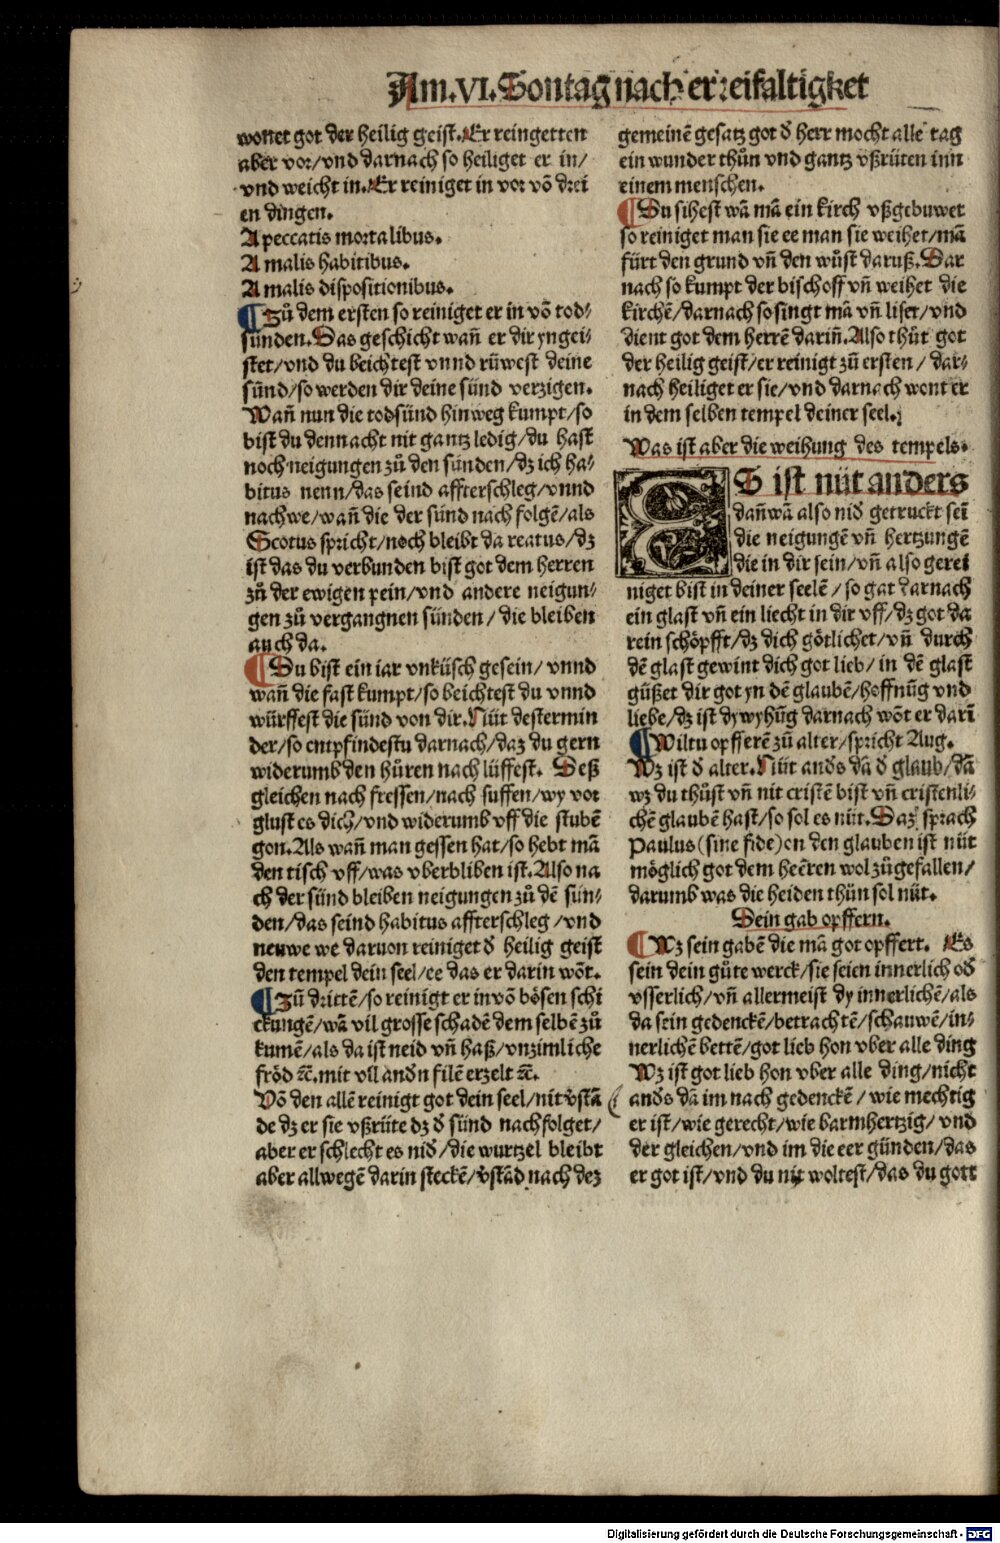 Am.VI.Sontag nach erzeifaltigket
wonet got der heilig geist. Er reingetten
aber vor/vnd darnach so heiliget er in/
vnd weicht in. Er reiniget in vor vō drei
en dingen.
A peccatis mortalibus.
A malis habitibus.
A malis dispositionibus.
¶ Zů dem ersten so reiniget er in vō tod-
sünden. Das geschicht wañ er dir yngei-
stet/vnd du beichtest vnnd rüwest deine
sünd/so werden dir deine sünd verzigen.
Wañ nun die todsünd hinweg kumpt/so
bist du dennacht nit gantz ledig/du hast
noch neigungen zů den sünden/dz ich ha-
bitus nenn/das seind affterschleg/vnnd
nachwe/wañ die der sünd nach folgē/als
Scotus spricht/noch bleibt da reatus/dz
ist das du verbunden bist got dem herren
zů der ewigen pein/vnd andere neigun-
gen zů vergangnen sünden/die bleiben
auch da.
¶ Du bist ein iar vnküsch gesein/vnnd
wañ die fast kumpt/so beichtest du vnnd
würffest die sünd von dir. Nüt destermin
der/so empfindestu darnach/daz du gern
widerumb den hůren nach lüffest. Deß
gleichen nach fressen/nach suffen/wy vor
glust es dich/vnd widerumb vff die stubē
gon. Als wañ man gessen hat/so hebt mā
den tisch vff/was vberbliben ist. Also na
ch der sünd bleiben neigungen zů dē sün-
den/das seind habitus affterschleg/vnd
neuwe we daruon reiniget d̄ heilig geist
den tempel dein seel/ee das er darin wōt.
¶ Zů drittē/so reinigt er in vō bösen schi
ckungē/wā vil grosse schadē dem selbē zů
kumē/als da ist neid vñ haß/vnzimliche
fröd ꝛc̄. mit vil andn filē erzelt ꝛc̄.
Vō den allē reinigt got dein seel/nit v̄stā
de dz er sie vßrüte dz d̄ sünd nachfolget/
aber er schlecht es nid̄/die wurtzel bleibt
aber allwegē darin steckē/v̄stād nach dez
gemeinē gesatz got d̄ herr mocht alle tag
ein wunder thůn vnd gantz vßrüten inn
einem menschen.
¶ Du sihest wā mā ein kirch vßgebuwet
so reiniget man sie ee man sie weihet/mā
fürt den grund vñ den wůst daruß. Dar
nach so kumpt der bischoff vñ weihet die
kirchē/darnach so singt mā vñ liset/vnd
dient got dem herrē darin̄. Also thůt got
der heilig geist/er reinigt zů ersten/dar-
nach heiliget er sie/vnd darnach wont er
in dem selben tempel deiner seel.
Was ist aber die weihung des tempels.
ES ist nüt anders
dañ wā also nid̄ getruckt sei
die neigungē vñ hertzungē
die in dir sein/vñ also gerei
niget bist in deiner seelē/so gat darnach
ein glast vñ ein liecht in dir vff/dz got da
rein schöpfft/dz dich götlichet/vñ durch
dē glast gewint dich got lieb/in dē glast
güßet dir got yn dē glaubē/hoffnūg vnd
liebe/dz ist dy wyhūg darnach wōt er dari
¶ Wiltu opfferē zů alter/spricht Aug.
Wz ist d̄ alter. Nüt and̄s dā d̄ glaub/dā
wz du thůst vñ nit cristē bist vñ cristenli-
chē glaubē hast/so sol es nüt. Daz sprach
Paulus (sine fide) on den glauben ist nüt
möglich got dem heērē wol zůgefallen/
darumb was die heiden thůn sol nüt.
Dein gab opffern.
¶ Wz sein gabē die mā got opffert. Es
sein dein gůte werck/sie seien innerlich od̄
vsserlich/vñ allermeist dy innerlichē/als
da sein gedenckē/betrachtē/schauwē/in-
nerlichē bettē/got lieb hon vber alle ding
Wz ist got lieb hon vber alle ding/nicht
and̄s dā im nach gedenckē/wie mechtig
er ist/wie gerecht/wie barmhertzig/vnd
der gleichen/vnd im die eer günden/das
er got ist/vnd du nit woltest/das du gott
Digitalisierung gefördert durch die Deutsche Forschungsgemeinschaft - DFG